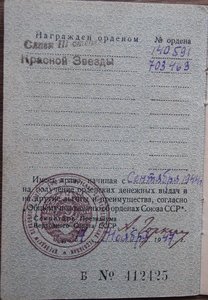 Награжден орденом № ордена
Слава III степени 140591
Красной Звезды 703463
Имеет право, начиная с сентября 1944 г.
на получение орденских денежных выдач и
на другие льготы и преимущества, согласно
Общему положению об орденах Союза ССР.
Секретарь Президиума
Верховного Совета СССР
ноября 1947
Б № 412425